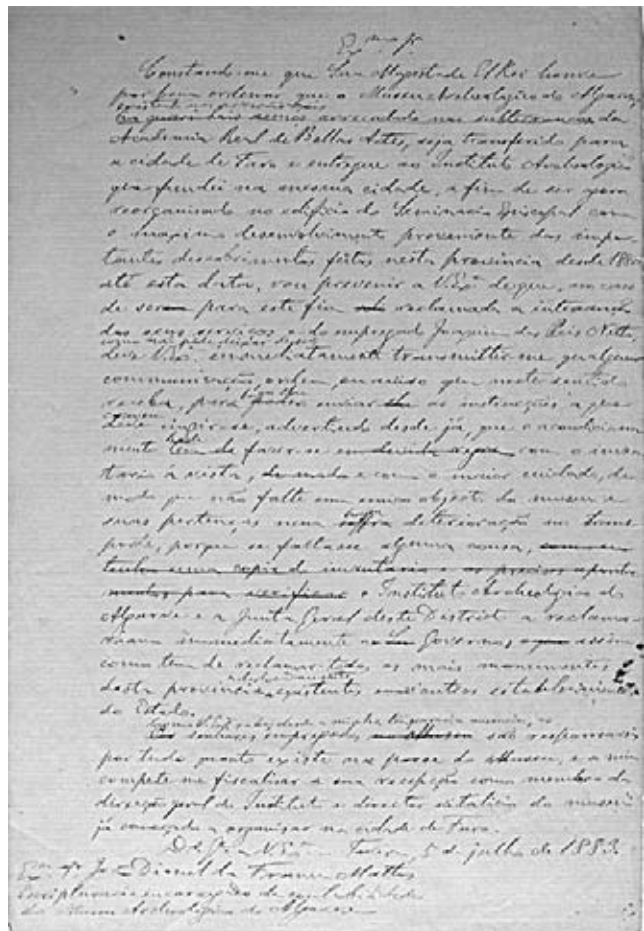 Ex.mo Sr.
Constando-me que Sua Magestade El Rei houve
por bem ordenar que o Museu Archeologico do Algarve
existente no
arrecadado nas subterraneos da
Academia Real de Bellas Artes, seja transferido para
a cidade de Faro e entregue ao Instituto Archeologico
que fundei na mesma cidade, a fim de ser
reorganisado no edificio do Seminario Episcopal com
o maximo desenvolvimento proveniente das impor-
tantes descobrimentos feitos nesta provincia desde 1880
até esta data, vou prevenir a V. Ex.a de que, no caso
de ser para este fim reclamada a
dos seus serviços e do empregado Joaquim dos Reis Netto,
deve V. Ex.a immediatamente transmittir-me qualquer
communicação, ordem, ou aviso que neste sentido
receba, para enviar as instrucções a que
deve cingir-se, advertindo desde já, que o acondiciona-
mento de fazer-se em devida regra com o inven-
tario á vista, de modo e com o maior cuidado, de
modo que não falte um unico objecto do museu e
suas pertenças nem soffra deterioração no trans-
porte, porque se faltasse alguma cousa, como eu
tenho uma copia do inventario e os precisos aponta-
mentos para verificar o Instituto Archeologico do
Algarve e a Junta Geral deste Districto a reclama-
riam immediatamente ao Governo, assim
como tem de reclamar todos os mais monumentos
desta provincia existentes em outros estabelecimentos
do Estado.
empregados do Museu são responsaveis
por tudo quanto existe na posse do Museu, e a mim
compete-me fiscalisar a sua recepção como membro da
direcção geral do Instituto e director vitalicio do museu
já começado a organisar na cidade de Faro.
De V. Ex.a Tavira, 5 de julho de 1883.
Ex.mo Sr. José Daniel da Franca Mattos
do Museu Archeologico do Algarve